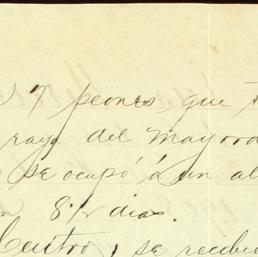 7 peones que
raya del mayor
se ocupó á un al
8 1/2 dias.
Centro, se recibi